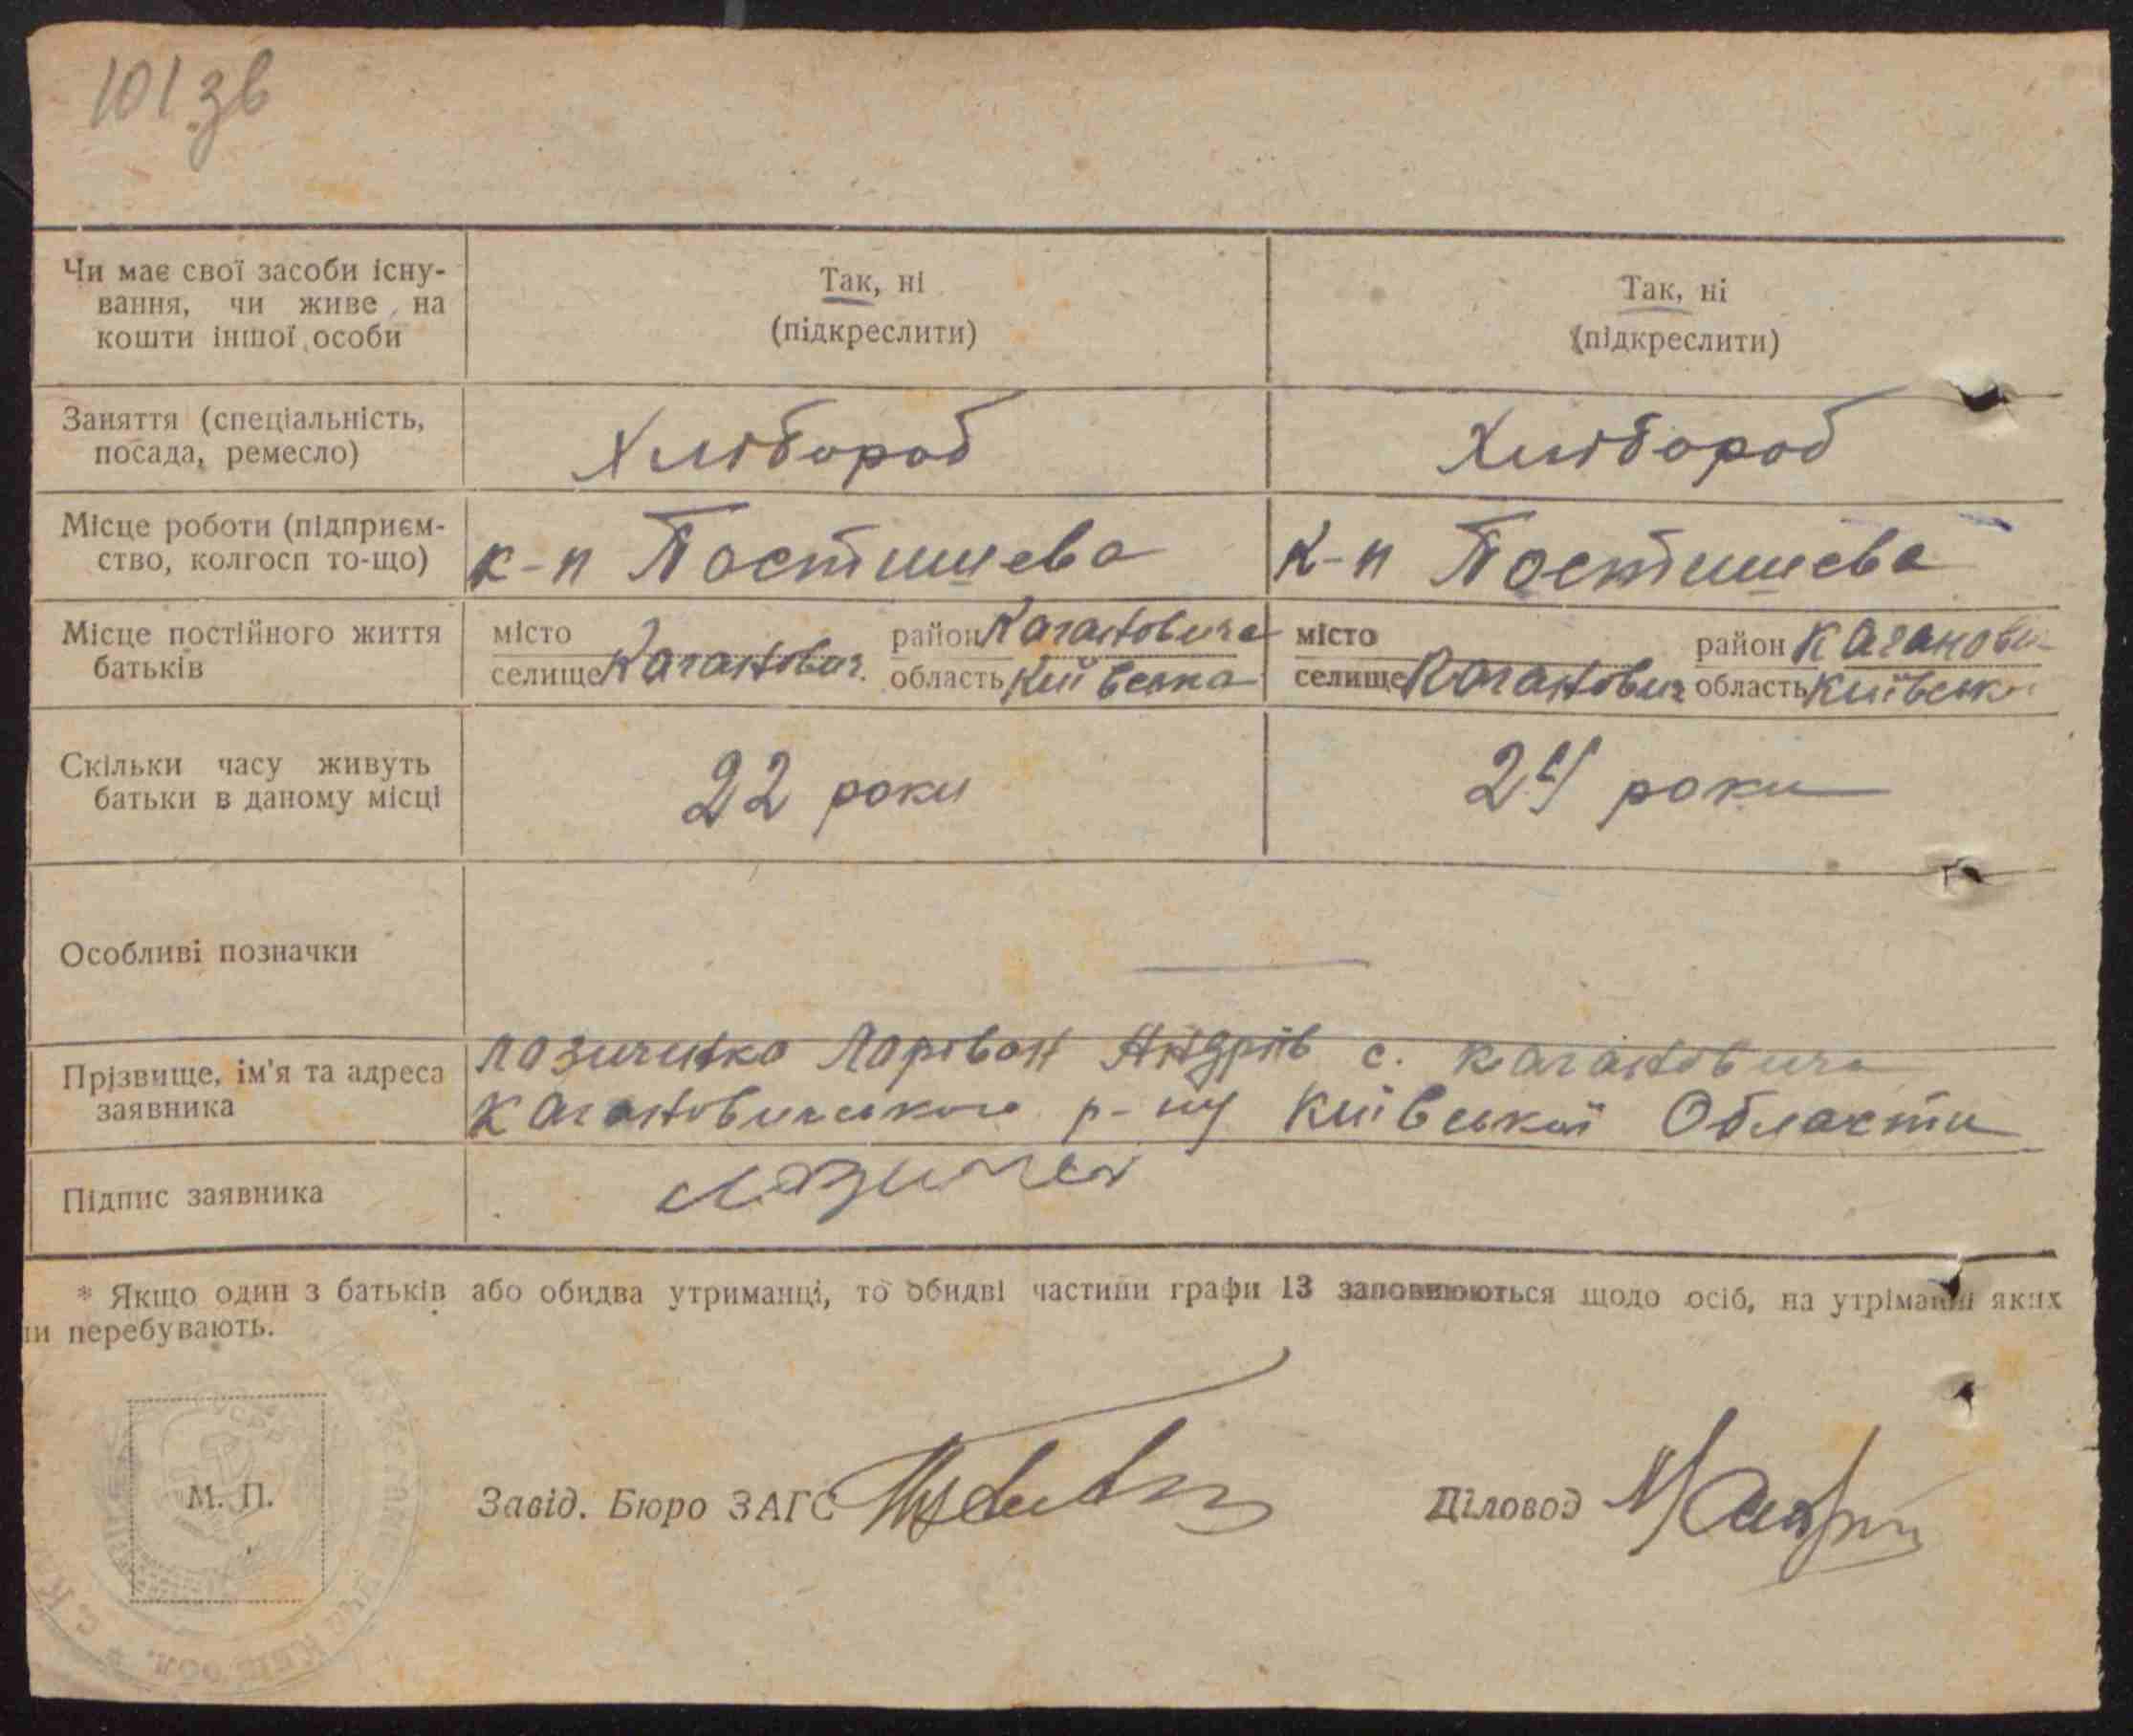 101 зв
Чи має свої засоби існу-
вання, чи живе на
кошти іншої особи
Так, ні
(підкреслити)
Так, ні
(підкреслити)
Заняття (спеціальність,
посада, ремесло)
Хлібороб
Хлібороб
Місце роботи (підприєм-
ство, колгосп то-що)
к-п Постишева
к-п Постишева
Місце постійного життя
батьків
місто
селище Каганович.
район Кагановича
область Київська
місто
селище Каганович
район Каганови-
область Київськ
Скільки часу живуть
батьки в даному місці
22 роки
24 роки
Особливі позначки
Прізвище, ім'я та адреса
заявника
Лазиченко Ларівон Андрів с. Кагановича
Кагановичського р-ну Київської Области
Підпис заявника
* Якщо один з батьків або обидва утриманці, то обидві частини графи 13 заповнюються щодо осіб, на утріманні яких
ни перебувають.
М. П.
Завід. Бюро ЗАГС
Діловод